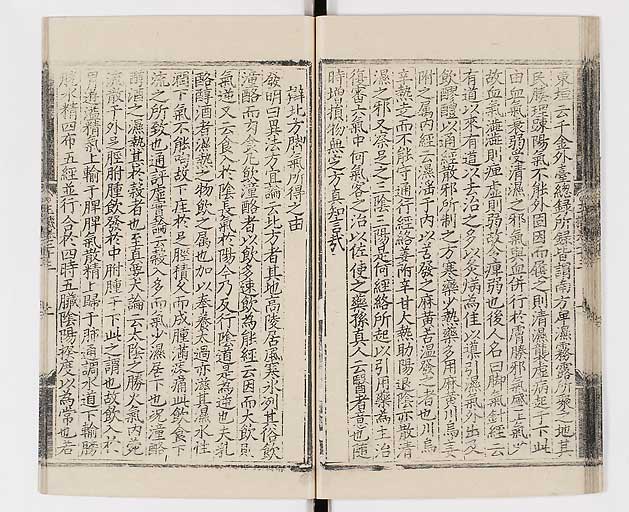 東垣云千金外臺總錄所錄皆謂南方卑濕霧露所聚之地其
民腠理踈陽氣不能外固因而履之則清濕襲虛病起于下此
由血氣衰弱受清濕之邪氣與血併行於膚腠邪氣盛正氣少
故血氣濇濇則痺虛則弱故令痺弱也後人名曰脚氣針經云
有道以來有道以去治之多以灸焫為佳以導引濕氣外出及
飲醪醴以通經散邪所制之方寒藥少熱藥多用麻黃川烏姜
附之屬內經云濕淫于內以苦發之麻黃苦溫發之者也川烏
辛熱走而不能守通行經絡姜附辛甘大熱助陽退陰亦散清
濕之邪又察足之三陰三陽是何經絡所起以引用藥為主治
復審六氣中何氣客之治以佐使之藥孫真人云醫者意也隨
時增損物無定方真知言哉
辯北方脚氣所得之由
發明曰異法方宜論云北方者其地高陵居風寒冰冽其俗飲
潼酪而肉食凡飲潼酪者以飲多速飲為能經云因而大飲則
氣逆又云食入於陰長氣於陽今乃反行陰道是為逆也夫乳
酪醇酒者濕熱之物飲之屬也加以奉養太過亦滋其濕水性
潤下氣不能呴故下疰於足脛積久而成腫滿疼痛此飲食下
流之所致也通評虛實論云穀入多而氣少濕居下也况潼酪
醇酒之濕熱甚於穀者也至真要大論云太陰之勝火氣內鬱
流散于外足脛胕腫飲發於中胕腫于下此之謂也故飲入於
胃遊溢精氣上輸于脾脾氣散精上歸于肺通調水道下輸膀
胱水精四布五經並行合於四時五臟陰陽揆度以為常也若